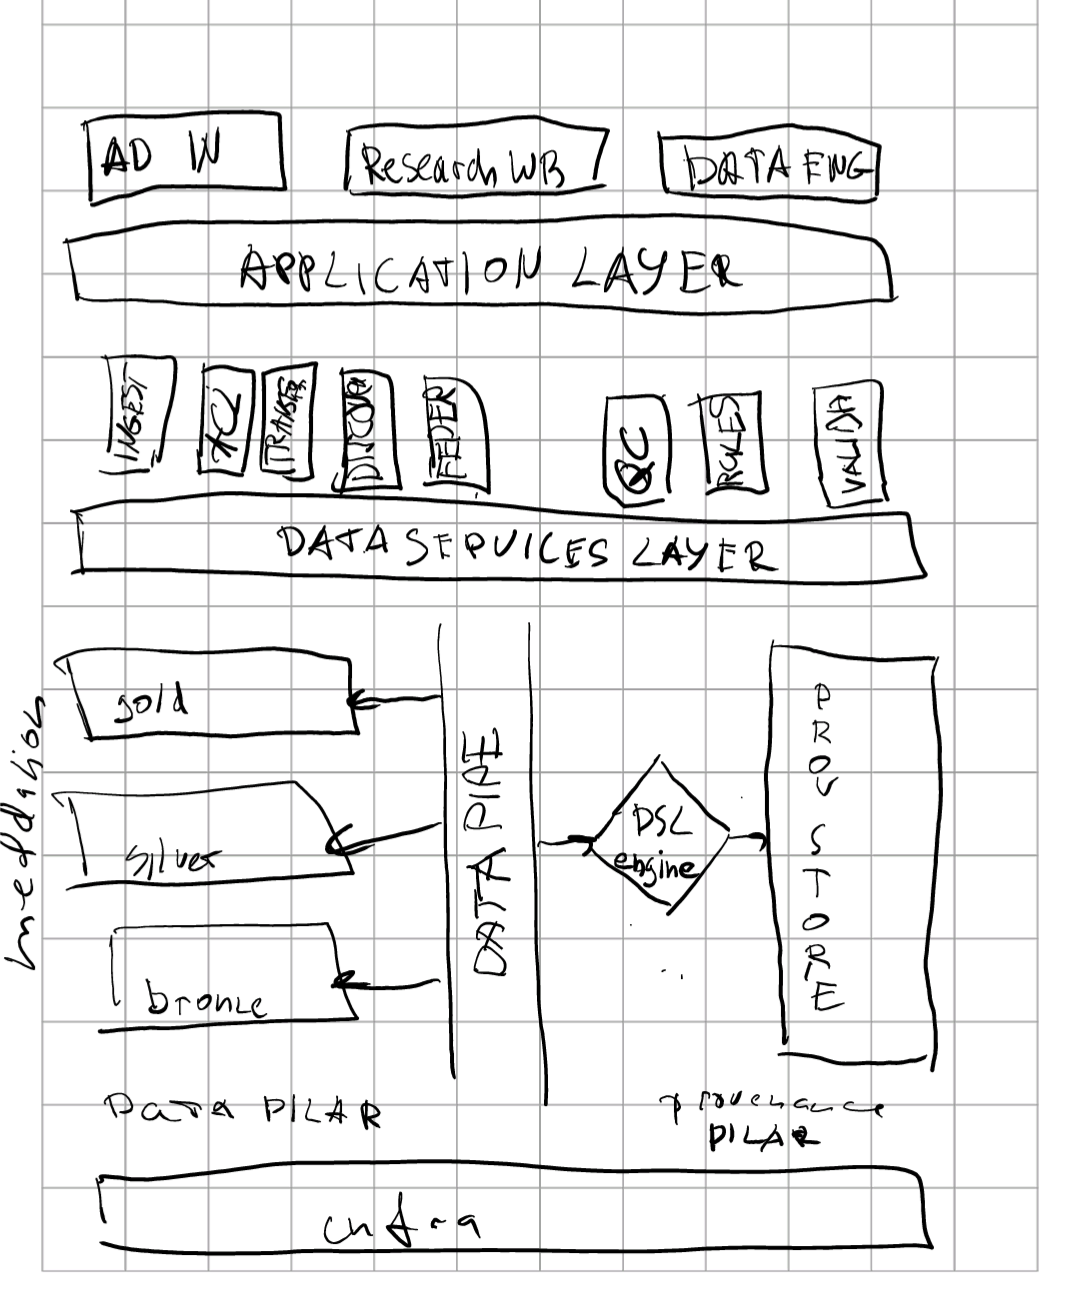 AD IN
Research WB
DATA ENG
APPLICATION LAYER
INGEST
ACL
TRANSFR
DISCOVR
FEDER
QC
RULES
VALIDA
DATA SERVICES LAYER
gold
silver
bronze
DATA PIPE
DSL
engine
PROV STORE
Data PILAR
provenance
PILAR
infra